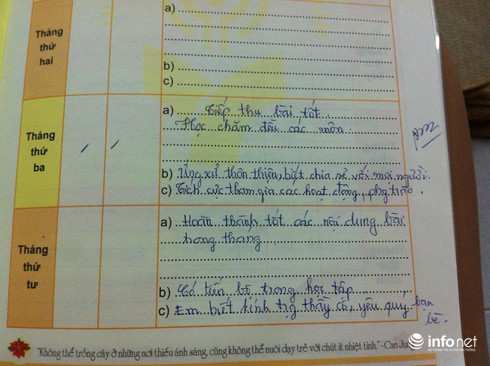 Tháng
thứ
hai
a)
b)
c)
Tháng
thứ
ba
a) Tiếp thu bài tốt
Học chăm đều các môn
b) Ứng xử thân thiện, biết chia sẻ với mọi người.
c) Tích cực tham gia các hoạt động, phg trào.
Tháng
thứ
tư
a) Hoàn thành tốt các nội dung bài
trong tháng
b) Có tiến bộ trong học tập
c) Em biết kính trg thầy cô, yêu quý bạn
bè.
"Không thể trồng cây ở những nơi thiếu ánh sáng, cũng không thể nuôi dạy trẻ với chút ít nhiệt tình." - Can
infonet